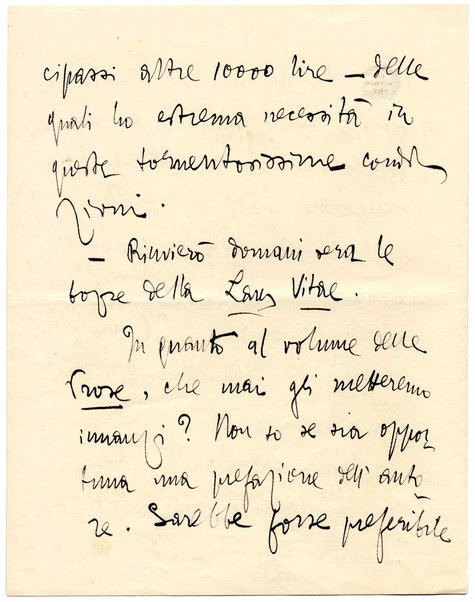 cipassi altre 10000 lire – delle
quali ho estrema necessità in
queste tormentosissime condi
zioni.
– Rinvierò domani sera le
bozze della Laus Vitae.
In quanto al volume delle
Prose, che mai gli metteremo
innanzi? Non so se sia oppor
tuna una prefazione dell'auto
re. Sarebbe forse preferibile